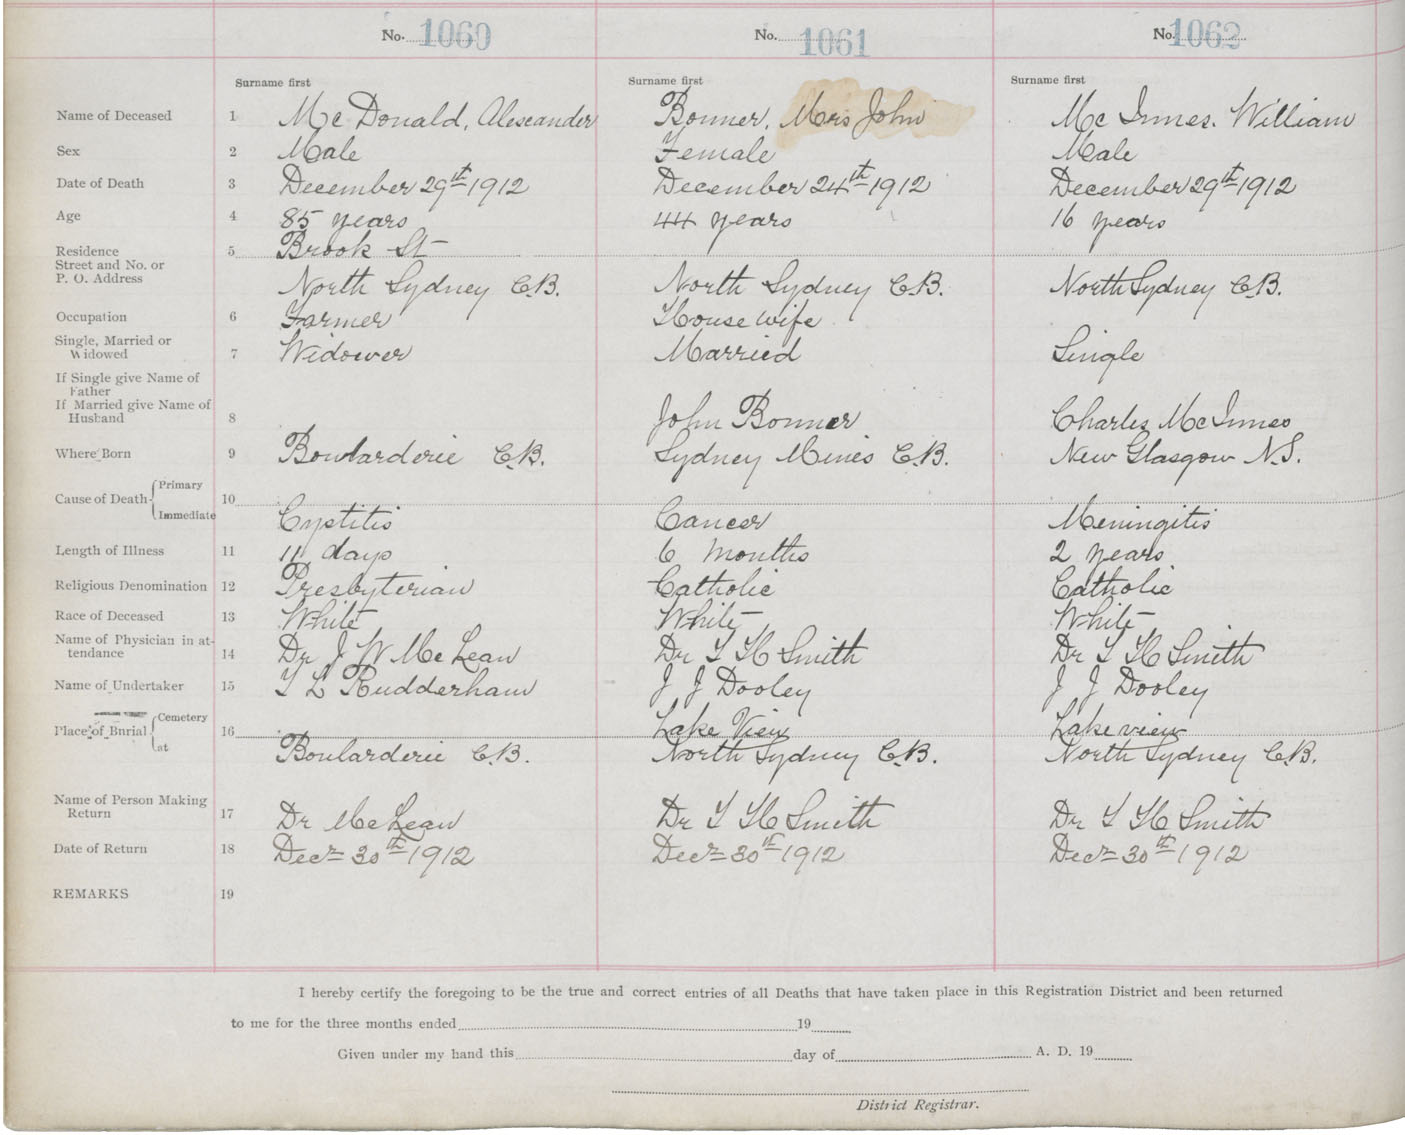 No. 1060 No. 1061 No. 1062
Surname first Surname first Surname first
Name of Deceased 1 Mc Donald, Alexander Bonner, Mrs John Mc Innes. William
Sex 2 Male Female Male
Date of Death 3 December 29th 1912 December 24th 1912 December 29th 1912
Age 4 85 years 44 years 16 years
Residence 5 Brook St
Street and No. or
P. O. Address North Sydney C.B. North Sydney C.B. North Sydney C.B.
Occupation 6 Farmer House wife
Single, Married or
Widowed 7 Widower Married Single
If Single give Name of
Father
If Married give Name of
Husband 8 John Bonner Charles McInnes
Where Born 9 Boularderie C.B. Sydney Mines C.B. New Glasgow N.S.
Cause of Death Primary
Immediate 10 Cystitis Cancer Meningitis
Length of Illness 11 11 days 6 months 2 years
Religious Denomination 12 Presbyterian Catholic Catholic
Race of Deceased 13 White White White
Name of Physician in at-
tendance 14 Dr J W McLean Dr T H Smith Dr T H Smith
Name of Undertaker 15 T L Rudderham J J Dooley J J Dooley
Place of Burial Cemetery 16 Lake View Lakeview
at Boularderie C.B. North Sydney C.B. North Sydney C.B.
Name of Person Making
Return 17 Dr McLean Dr T H Smith Dr T H Smith
Date of Return 18 Decr 30th 1912 Decr 30th 1912 Decr 30th 1912
REMARKS 19
I hereby certify the foregoing to be the true and correct entries of all Deaths that have taken place in this Registration District and been returned
to me for the three months ended 19
Given under my hand this day of A. D. 19
District Registrar.